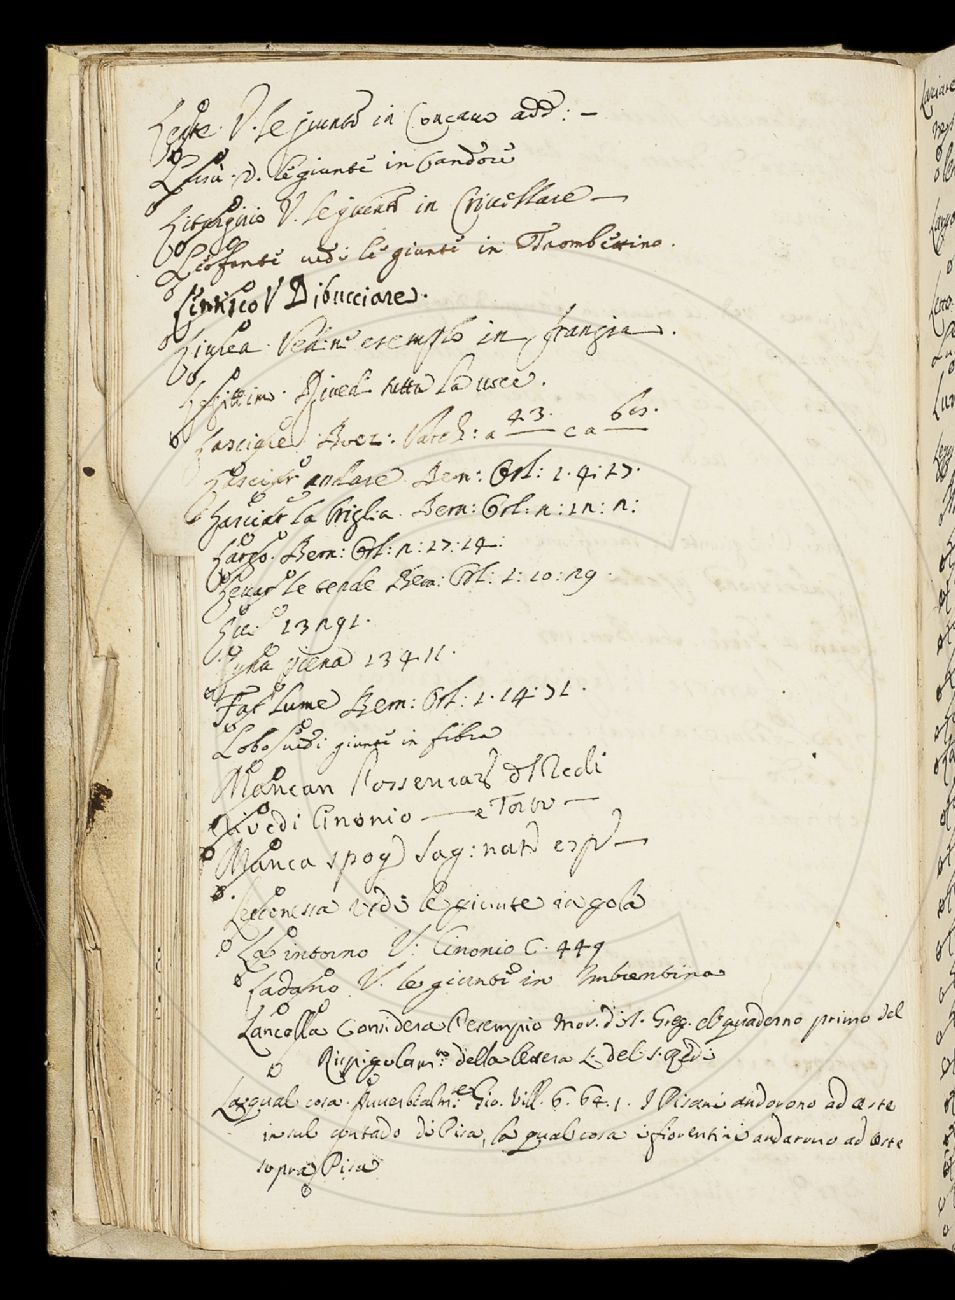 Lente. V. le giunte in Concavo add: –
V. le giunte in bandoré
Litargirio V. le giunte in Crivellare –
Liofonte vedi le giunte in Trombettino.
Lentisco V Dibucciare.
Linsea. Vedine esempio in frangia.
Legittimo. Rivedi tutta la voce.
Lasciare: Boez: Varch: a 43. e a 68.
Lasciar andare. Bern: Orl: 1. 4: 27.
Lasciar la briglia. Bern: Orl: n: 1n: n:
Largo. Bern: Orl: n: 27: 14:
Levar le tende Bern: Orl: 1: 10: n9.
13n91.
Luna piena 13411.
Far lume Bern: Orl: 1. 14: 71.
Lobo vedi giunte in fibra
Mancan l'osservaz. d'l Redi
Rivedi Cinonio — e Torto —
Manca spog
vedi le giunte in gola
Là intorno V: Cinonio C. 449
Ladano V. le giunte in Imbrentina
Lancella Considera l'esempio Mor. di S. Greg. al quaderno primo del
Rispigolam.to della lettera L. del S. Redi
La qual cosa. Avverbialm.te Gio. Vill. 6. 64. 1. I Pisani andorono ad oste
in sul contado di Pisa, la qual cosa i fiorentini andarono ad oste
sopra Pisa